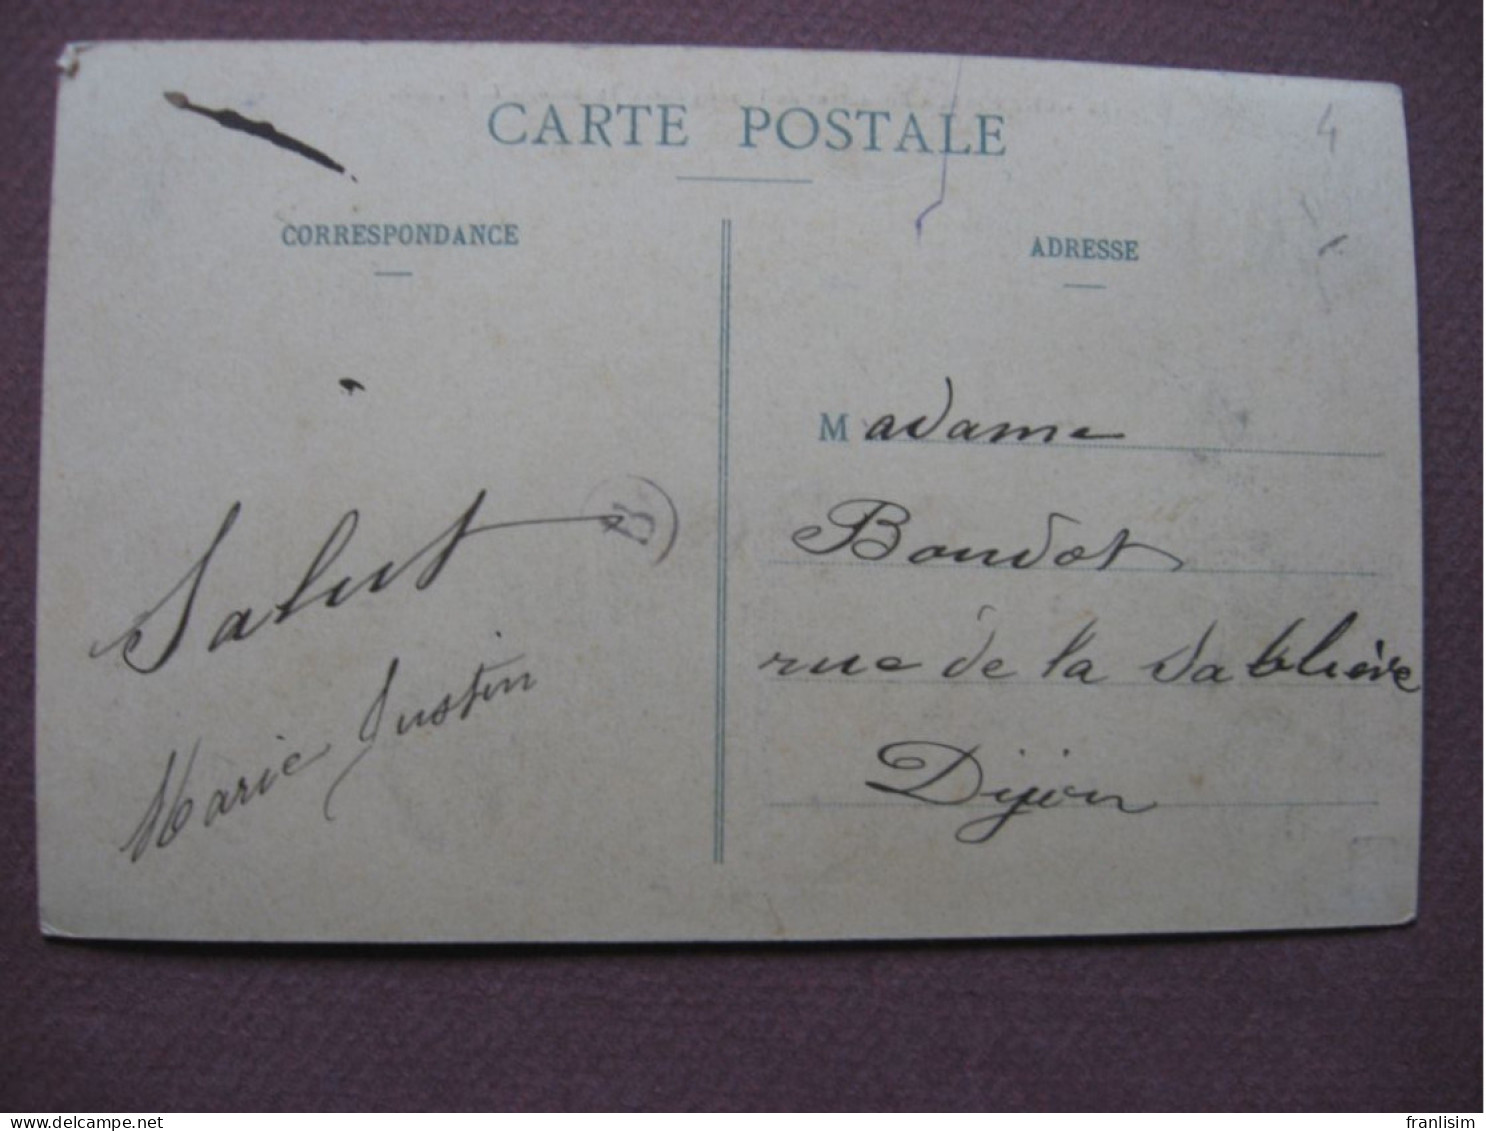 CARTE POSTALE
4
CORRESPONDANCE
ADRESSE
Salut
B
Marie Justin
Madame
Boudot
rue de la Sablière
Dijon
www.delcampe.net
franlisim